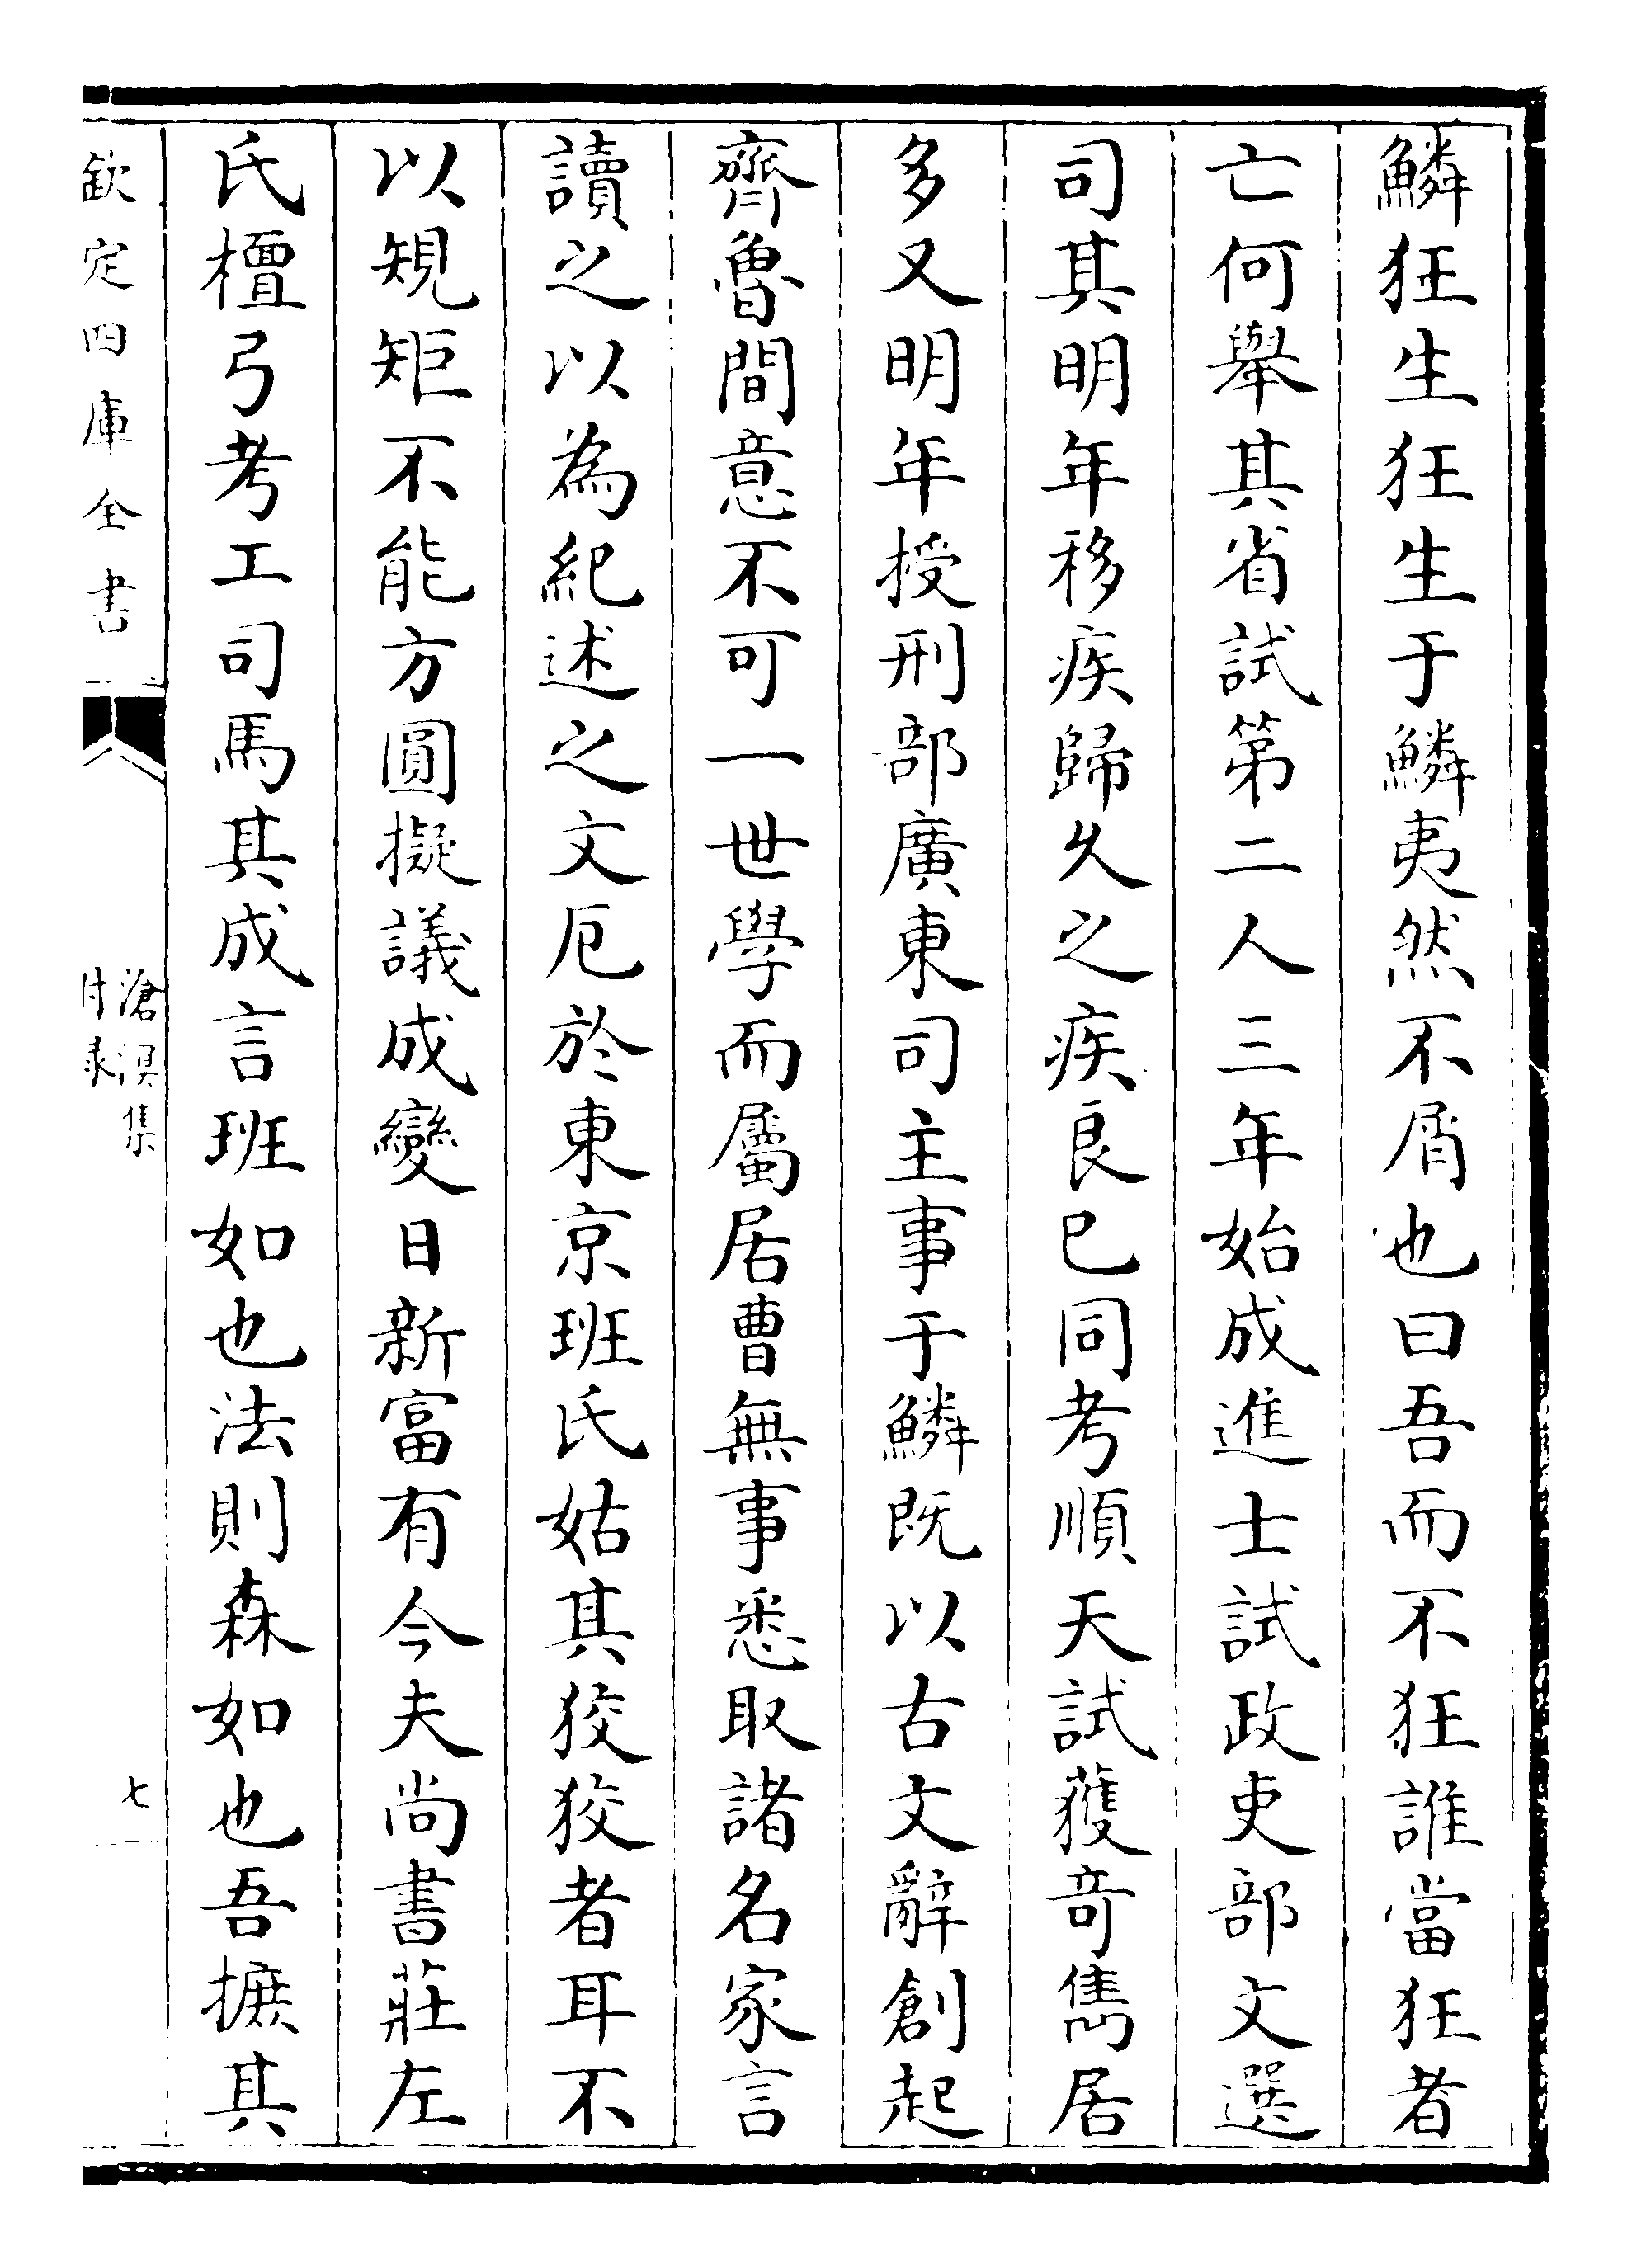 鱗狂生狂生于鱗夷然不屑也曰吾而不狂誰當狂者
亡何舉其省試第二人三年始成進士試政吏部文選
司其明年移疾歸久之疾良已同考順天試獲竒雋居
多又明年授刑部廣東司主事于鱗既以古文辭創起
齊魯間意不可一世學而屬居曹無事悉取諸名家言
讀之以為紀述之文厄於東京班氏姑其狡狡者耳不
以規矩不能方圓擬議成變日新富有今夫尚書莊左
氏檀弓考工司馬其成言班如也法則森如也吾摭其
欽定四庫全書
滄溟集
附录
七